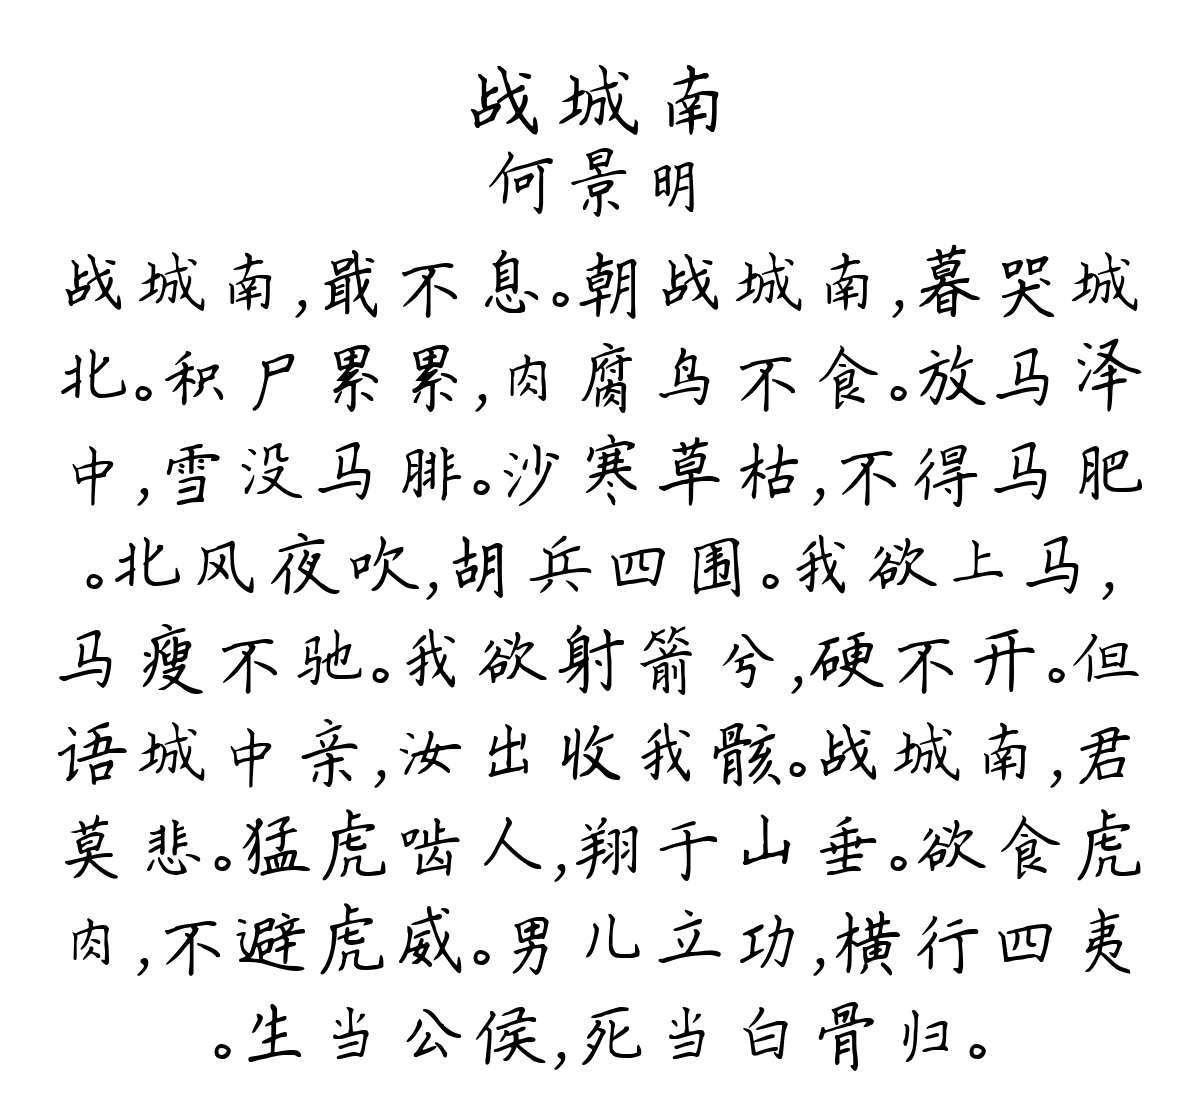 战城南
何景明
战城南,戢不息。朝战城南,暮哭城
北。积尸累累,肉腐鸟不食。放马泽
中,雪没马腓。沙寒草枯,不得马肥
。北风夜吹,胡兵四围。我欲上马,
马瘦不驰。我欲射箭兮,硬不开。但
语城中亲,汝出收我骸。战城南,君
莫悲。猛虎啮人,翔于山垂。欲食虎
肉,不避虎威。男儿立功,横行四夷
。生当公侯,死当白骨归。